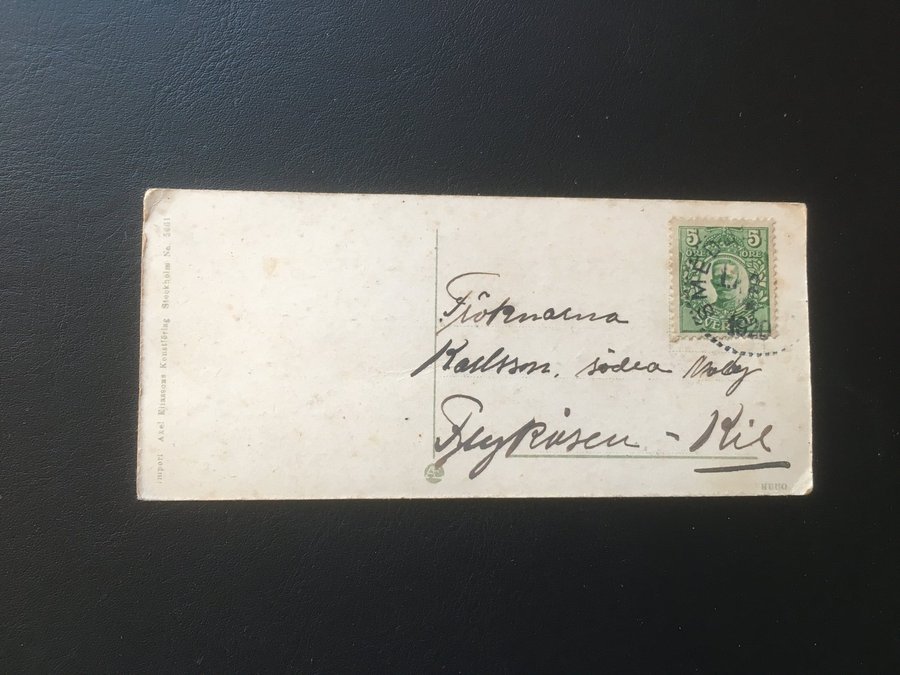 Import Axel Eliassons Konstförlag Stockholm No. 5661
5 5
ÖRE ÖRE
SVERIGE
1920
Fröknarna
Karlsson, södra
Brykåsen - Kil